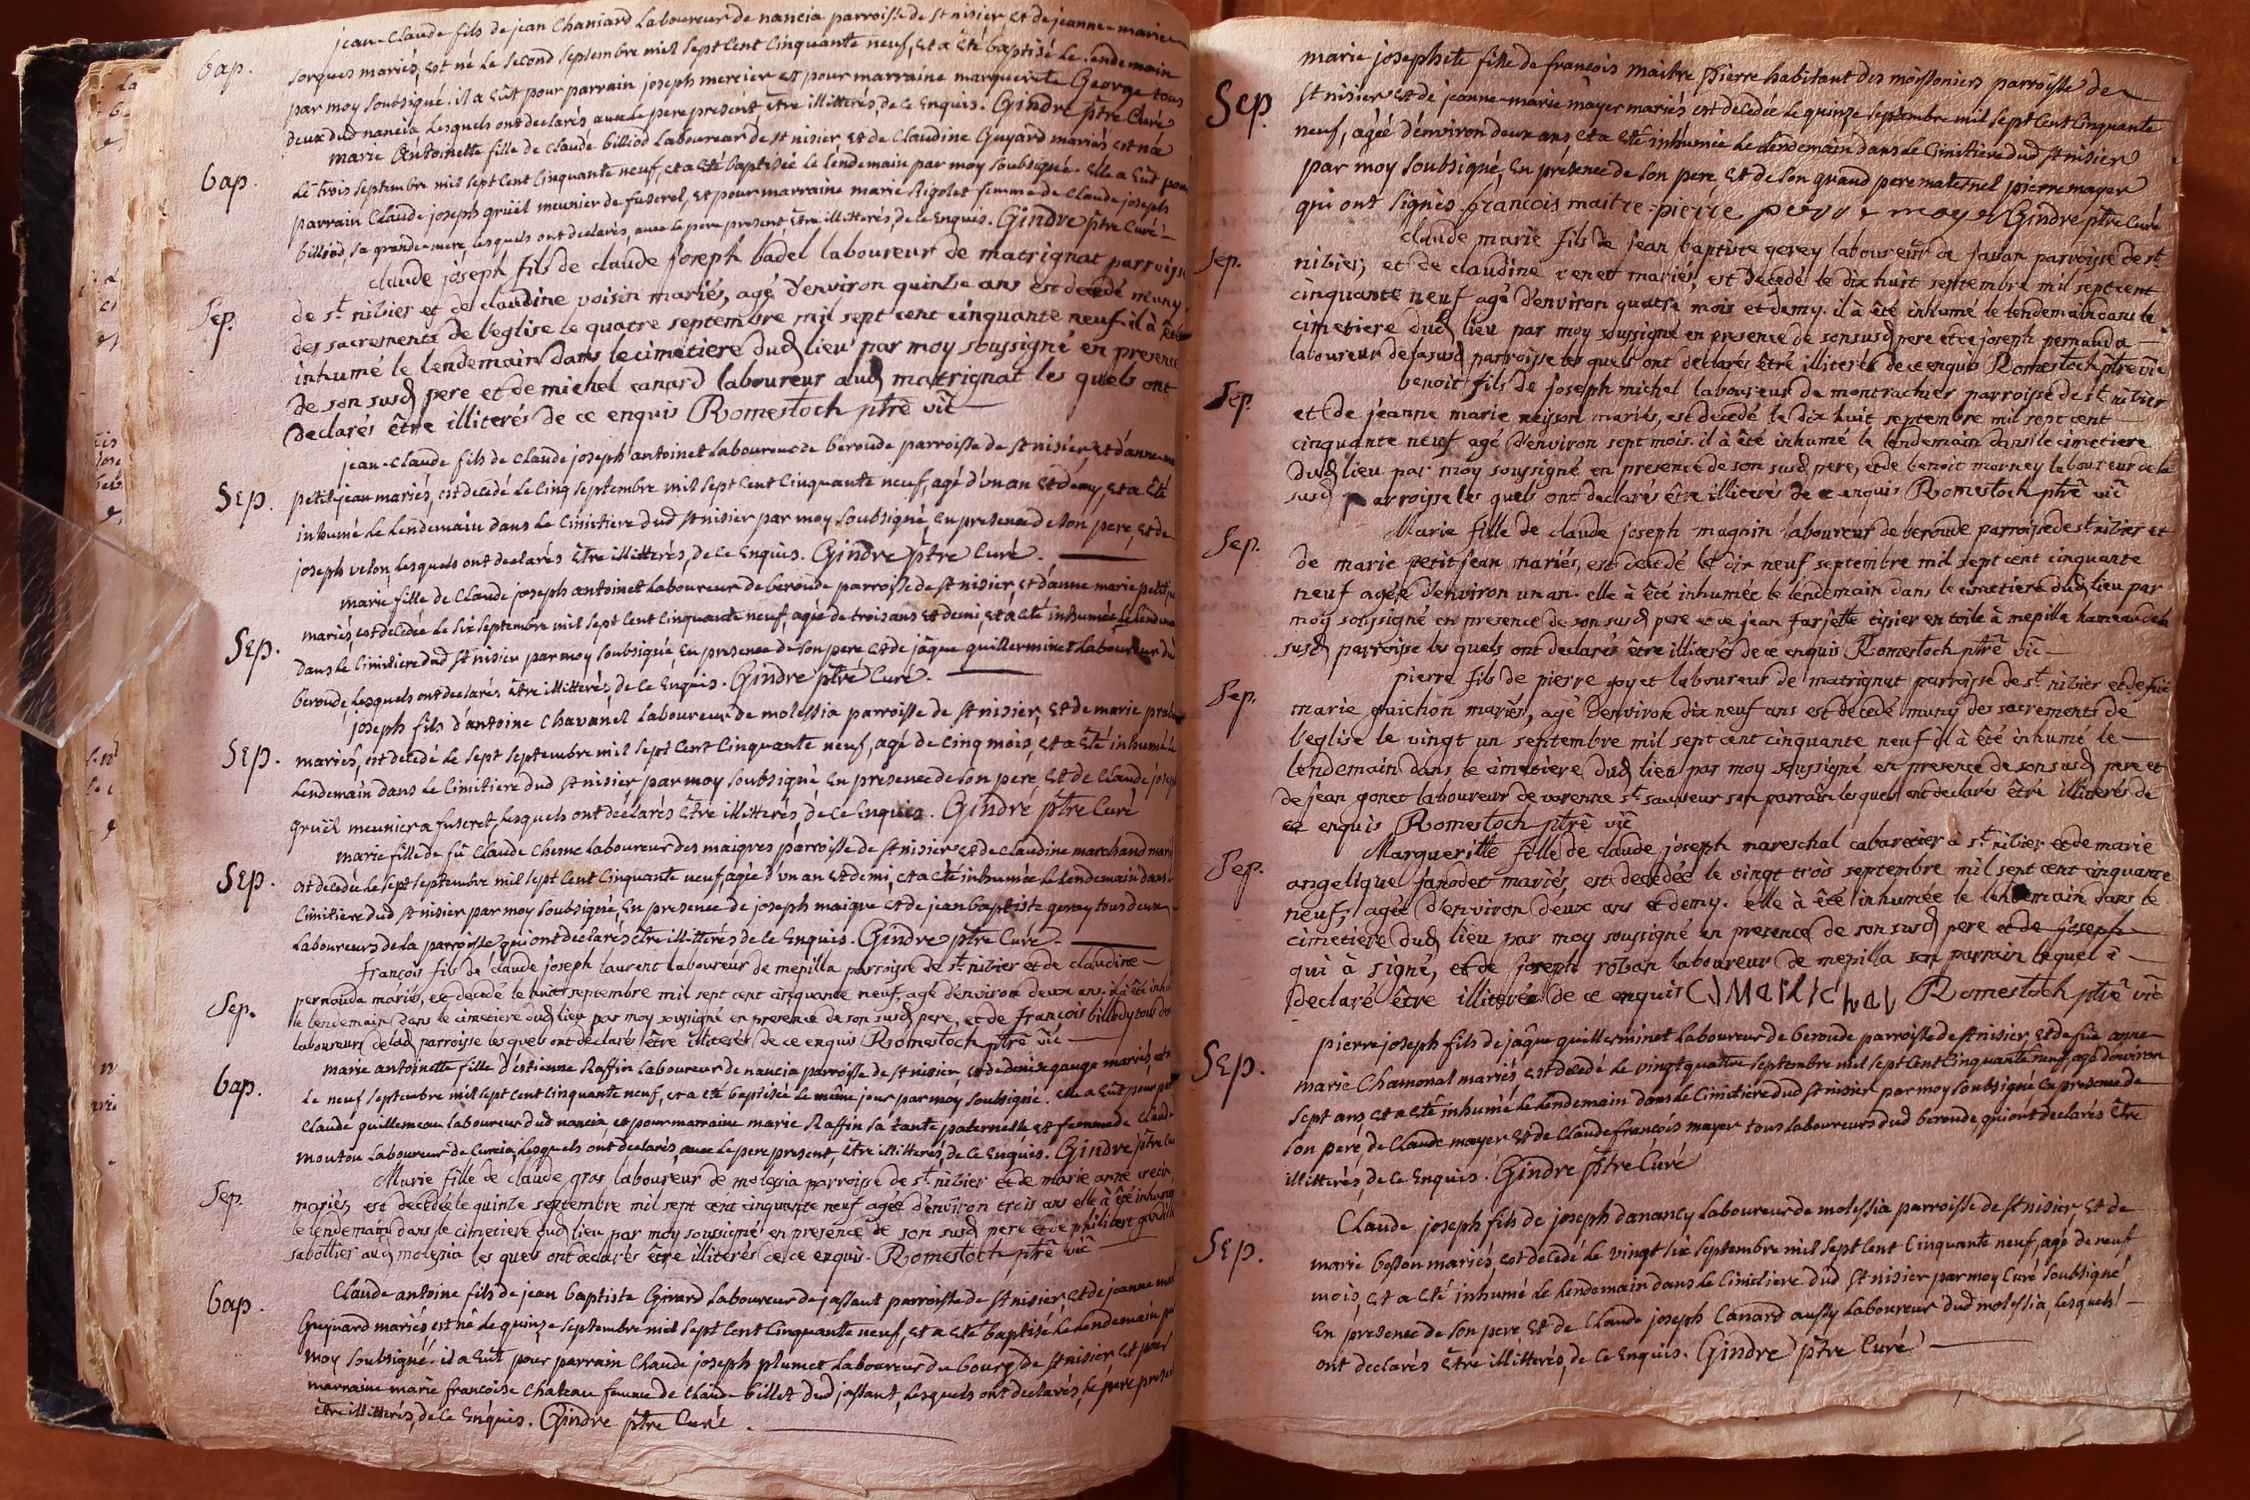 jean-claude fils de jean Chaniard laboureur de nancia parroisse de st nisier, et de jeanne-marie
bap. Sorgues mariés, est né le second septembre mil sept cent cinquante neuf, et a été baptisé le lendemain
par moy soubsigné. il a eût pour parrain joseph mercier et pour marraine marguerite George tous
deux dud nancia lesquels ont declarés avec le pere present être illitterés, de ce enquis. Gindre ptre Curé
marie Antoinette fille de claude billiod laboureur de st nisier et de Claudine Guyard mariés est né
bap. le trois septembre mil sept cent cinquante neuf, et a été baptisée le lendemain par moy soubsigné. elle a eut pour
parrain Claude joseph gruël meunier de fuseret, et pour marraine marie Rigolet femme de Claude joseph
billiod, sa grande-mere, lesquels ont declarés, avec le pere present, être illitterés, de ce enquis. Gindre ptre Curé
claude joseph fils de claude joseph badel laboureur de matrignat parroisse
Sep. de st nibier et de claudine voisin mariés, agé d'environ quinbe ans est decedé muny
des sacrements de l'eglise le quatre septembre mil sept cent cinquante neuf. il à êté
inhumé le lendemain dans le cimetiere dud lieu par moy soussigné en presence
de son susd pere et de michel canard laboureur aud matrignat les quels ont
declarés être illiterés de ce enquis Romestoch ptrê viē
jean-claude fils de claude joseph antoinet laboureur de beroude parroisse de st nisier, et d'anne-
Sep. petitjean mariés, est decedé le cinq septembre mil sept cent cinquante neuf, agé d'un an et demy, et a été
inhumé le lendemain dans le cimitiere dud st nisier par moy soubsigné, en presence de son pere, et de
joseph velon, lesquels ont declarés être illitterés, de ce enquis. Gindre ptre Curé.
marie fille de claude joseph antoinet laboureur de beroude parroisse de st nisier, et d'anne marie petitje
Sep. mariés, est decedée le six septembre mil sept cent cinquante neuf, agée de trois ans et demi, et a été inhumée le lendemain
dans le cimitiere dud st nisier par moy soubsigné, en presence de son pere et de jâque guilleminet laboureur de
beroude, lesquels ont declarés être illitterés, de ce enquis. Gindre ptré Curé.
joseph fils d'antoine Chavanel laboureur de molessia parroisse de st nisier, et de marie
Sep. mariés, est decedé le sept septembre mil sept cent cinquante neuf, agé de cinq mois, et a été inhumé le
lendemain dans le cimitiere dud st nisier par moy soubsigné en presence de son pere, et de claude joseph
gruël meunier a fuseret, lesquels ont declarés être illitterés, de ce enquis. Gindre ptre Curé
marie fille de fû claude Chesne laboureur des maigres parroisse de st nisier et de claudine marchand mariés
Sep. est decedée le sept septembre mil sept cent cinquante neuf, agée d'un an et demi, et a été inhumée le lendemain dans le
cimitiere dud st nisier par moy soubsigné, en presence de joseph maigre et de jean baptiste gerey tous deux
laboureurs de la parroisse qui ont declarés être illitterés de ce enquis. Gindre ptre Curé.
françois fils de claude joseph laurent laboureur de mepilla parroisse de st nibier et de claudine
Sep. pernauda mariés, est decedé le huit septembre mil sept cent cinquante neuf, agé d'environ deux ans. il à êté inhumé
le lendemain dans le cimetiere dud lieu par moy soussigné en presence de son susd pere, et de françois billod tous deux
laboureurs de lad parroisse les quels ont declarés être illiterés de ce enquis Romestoch ptrê viē
marie antoinette fille d'étienne Raffin laboureur de nancia parroisse de st nisier, et de denise gauge mariés est née
bap. le neuf septembre mil sept cent cinquante neuf, et a été baptisée le même jour par moy soubsigné. elle a eût pour parrain
Claude guillemeau laboureur dud nancia, et pour marraine marie Raffin sa tante paternelle et femme de claude
moutou laboureur de Curcia, lesquels ont declarés avec le pere present, être illitterés, de ce enquis. Gindre ptre Curé
Marie fille de claude gras laboureur de molessia parroisse de st nibier et de marie anne
Sep. mariés, est decedée le quinze septembre mil sept cent cinquante neuf agée d'environ trois ans elle à êté inhumée
le lendemain dans le cimetiere dud lieu par moy soussigné en presence de son susd pere et de philibert
sabottier aud molessia les quels ont declarés être illiterés de ce enquis Romestoch ptrê viē
Claude antoine fils de jean baptiste Girard laboureur de jassaut parroisse de st nisier, et de jeanne marie
bap. Guyard mariés, est né le quinze septembre mil sept cent cinquante neuf, et a été baptisé le lendemain par
moy soubsigné. il a eût pour parrain Claude joseph plumet laboureur du bourg de st nisier et pour
marraine marie françoise chateau femme de claude billet dud jassaut, lesquels ont declarés, le pere present
être illitterés, de ce enquis. Gindre ptre Curé.
marie josephete fille de francois maitre Pierre habitant des moissoniers parroisse de
Sep. st nisier et de jeanne-marie mayer mariés est decedée le quinze septembre mil sept cent cinquante
neuf, agée d'environ deux ans, et a eté inhumée le lendemain dans le cimitiere dud st nisier
par moy soubsigné, en présence de son pere, et de son grand pere maternel pierre mayer
qui ont signès. francois maitre-pierre pierre mayer Gindre ptre Curé
claude marie fils de jean baptiste gerey laboureur de javan parroisse de st
Sep. nibier, et de claudine venet mariés, est decedé le dix huit septembre mil sept cent
cinquante neuf agé d'environ quatre mois et demy. il à êté inhumé le lendemain dans le
cimetiere dud lieu par moy soussigné en presence de son susd pere et de joseph pernauda
laboureur de la susd parroisse les quels ont declarés être illiterés de ce enquis Romestoch ptrê viē
benoit fils de joseph michel laboureur de montrachier parroisse de st nibier
Sep. et de jeanne marie neyson mariés, est decedé le dix huit septembre mil sept cent
cinquante neuf agé d'environ sept mois. il à êté inhumé le lendemain dans le cimetiere
dud lieu par moy soussigné en presence de son susd pere, et de benoit morney laboureur de la
susd parroisse les quels ont declarés être illiterés de ce enquis Romestoch ptrê viē
Marie fille de claude joseph magnin laboureur de beroude parroisse de st nibier et
Sep. de marie petitjean mariés, est decedé le dix neuf septembre mil sept cent cinquante
neuf agée d'environ un an. elle à êté inhumée le lendemain dans le cimetiere dud lieu par
moy soussigné en presence de son susd pere et de jean farjette tisier en toile à mepilla hameau de la
susd parroisse les quels ont declarés être illiterés de ce enquis Romestoch ptrê viē
pierre fils de pierre goyet laboureur de matrignat parroisse de st nibier et de fuë
Sep. marie guichon mariés, agé d'environ dix neuf ans est decedé muny des sacrements de
l'eglise le vingt un septembre mil sept cent cinquante neuf il à êté inhumé le
lendemain dans le cimetiere dud lieu par moy soussigné en presence de son susd pere et
de jean gonet laboureur de varenne st sauveur son parrain les quels ont declarés être illiterés de
ce enquis Romestoch ptrê viē
Margueritte fille de claude joseph mareschal cabaretier à st nibier et de marie
Sep. angelique janodet mariés, est decedée le vingt trois septembre mil sept cent cinquante
neuf, agée d'environ deux ans et demy. elle à êté inhumée le lendemain dans le
cimetiere dud lieu par moy soussigné en presence de son susd pere et de joseph
qui à signé, et de joseph roban laboureur de mepilla son parrain lequel à
declaré être illiterée de ce enquis CJ Marichal Romestoch ptrê viē
pierre joseph fils de jâque guilleminet laboureur de beroude parroisse de st nisier, et de fûe anne
Sep. marie Chamonal mariés est decedé le vingt quatre septembre mil sept cent cinquante neuf, agé d'environ
sept ans, et a été inhumé le lendemain dans le cimitiere dud st nisier par moy soubsigné en presence de
son pere de Claude mayer et de Claude françois mayer tous laboureurs dud beroude qui ont declarés être
illitterés, de ce enquis. Gindre ptre Curé
Claude joseph fils de joseph danancy laboureur de molessia parroisse de st nisier, et de
Sep. marie bosson mariés, est decedé le vingt six septembre mil sept cent cinquante neuf, agé de neuf
mois, et a été inhumé le lendemain dans le cimitiere dud st nisier par moy Curé soubsigné
en presence de son pere, et de Claude joseph Canard aussy laboureur dud molessia, lesquels
ont declarés être illitterés, de ce enquis. Gindre ptre Curé